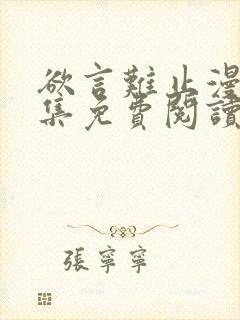 欲言難止漫
集免費閱讀
張寧寧